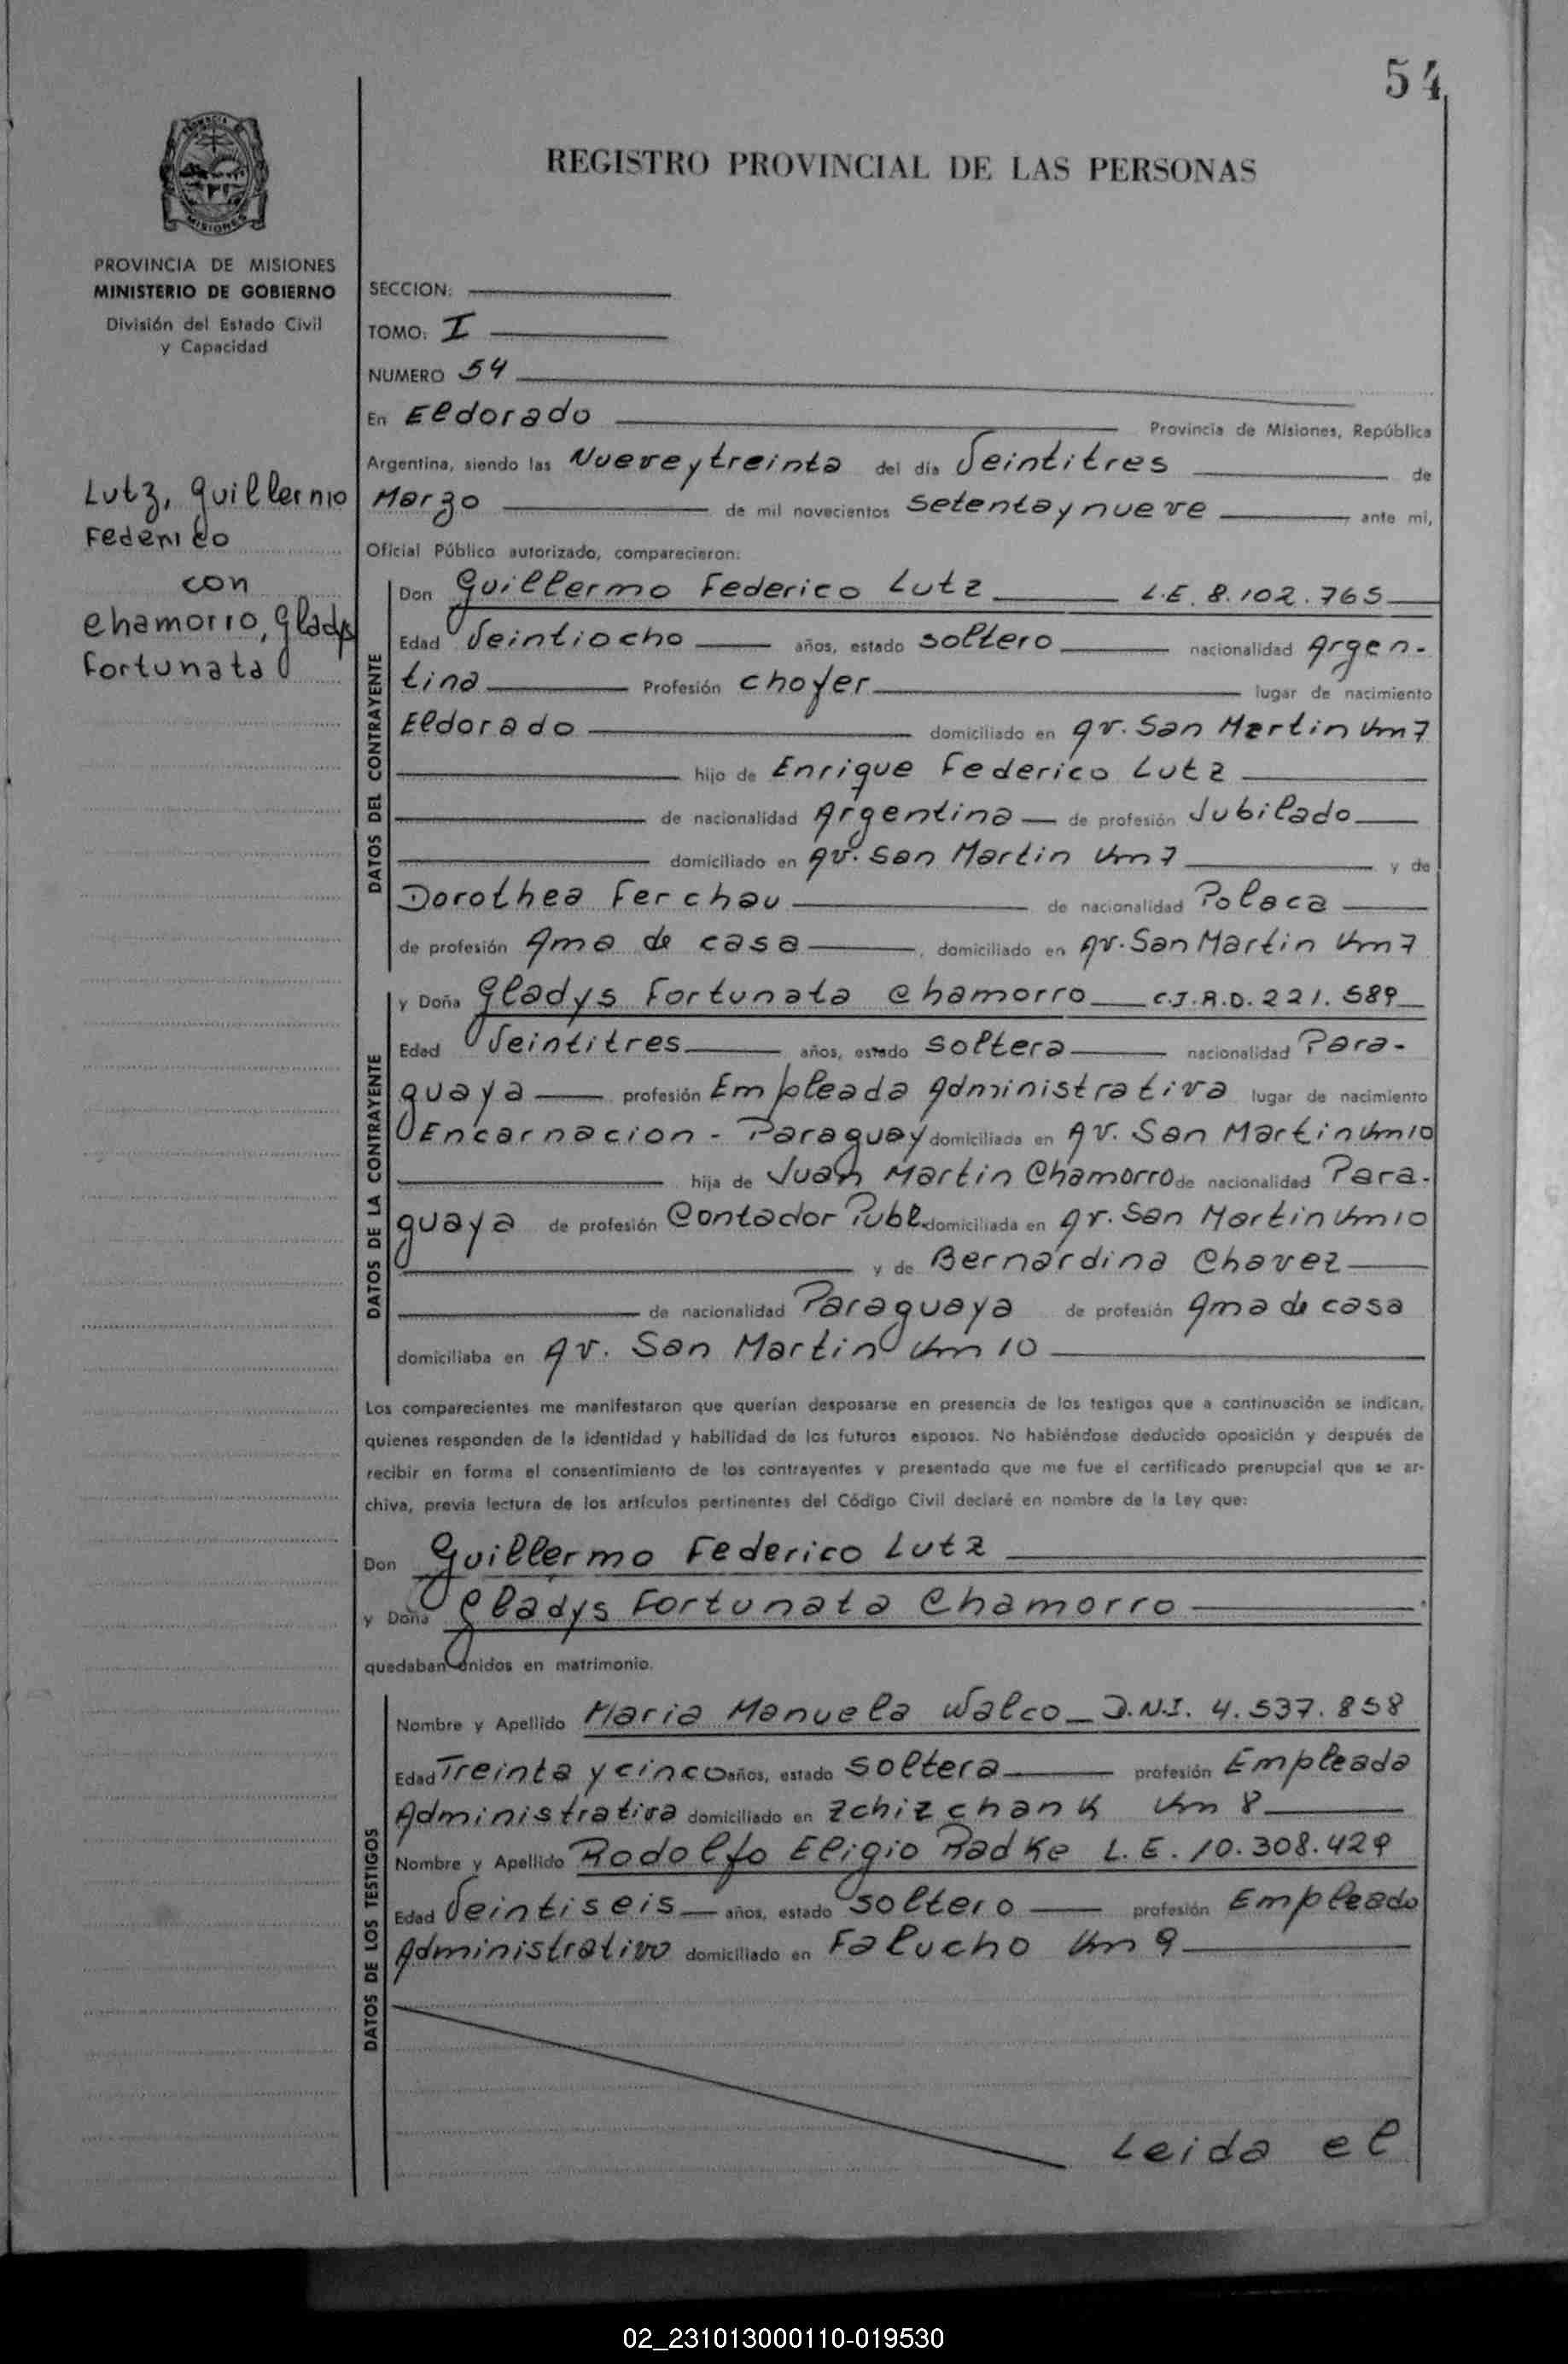 54
REGISTRO PROVINCIAL DE LAS PERSONAS
PROVINCIA DE MISIONES
MINISTERIO DE GOBIERNO
División del Estado Civil
y Capacidad
Lutz, Guillermo
Federico
con
Chamorro, Gladys
Fortunata
SECCION:
TOMO: I
NUMERO 54
En Eldorado Provincia de Misiones, República
Argentina, siendo las Nueve y treinta del día Veintitres de
Marzo de mil novecientos setenta y nueve ante mi,
Oficial Público autorizado, comparecieron:
DATOS DEL CONTRAYENTE
Don Guillermo Federico Lutz L.E. 8.102.765
Edad Veintiocho años, estado soltero nacionalidad Argen-
tina Profesión chofer lugar de nacimiento
Eldorado domiciliado en Av. San Martin Km 7
hijo de Enrique Federico Lutz
de nacionalidad Argentina de profesión Jubilado
domiciliado en Av. San Martin Km 7 y de
Dorothea Ferchau de nacionalidad Polaca
de profesión Ama de casa, domiciliado en Av. San Martin Km 7
DATOS DE LA CONTRAYENTE
y Doña Gladys Fortunata Chamorro C.I.R.D. 221.589
Edad Veintitres años, estado soltera nacionalidad Para-
guaya profesión Empleada Administrativa lugar de nacimiento
Encarnacion - Paraguay domiciliada en Av. San Martin Km 10
hija de Juan Martin Chamorro de nacionalidad Para-
guaya de profesión Contador Publ. domiciliada en Av. San Martin Km 10
y de Bernardina Chavez
de nacionalidad Paraguaya de profesión Ama de casa
domiciliaba en Av. San Martin Km 10
Los comparecientes me manifestaron que querían desposarse en presencia de los testigos que a continuación se indican,
quienes responden de la identidad y habilidad de los futuros esposos. No habiéndose deducido oposición y después de
recibir en forma el consentimiento de los contrayentes y presentado que me fue el certificado prenupcial que se ar-
chiva, previa lectura de los artículos pertinentes del Código Civil declaré en nombre de la Ley que:
Don Guillermo Federico Lutz
y Doña Gladys Fortunata Chamorro
quedaban unidos en matrimonio.
DATOS DE LOS TESTIGOS
Nombre y Apellido Maria Manuela Walco D.N.I. 4.537.858
Edad Treinta y cinco años, estado soltera profesión Empleada
Administrativa domiciliado en Zchizchank Km 8
Nombre y Apellido Rodolfo Eligio Radke L.E. 10.308.429
Edad Veintiseis años, estado soltero profesión Empleado
Administrativo domiciliado en Falucho Km 9
Leida el
02_231013000110-019530